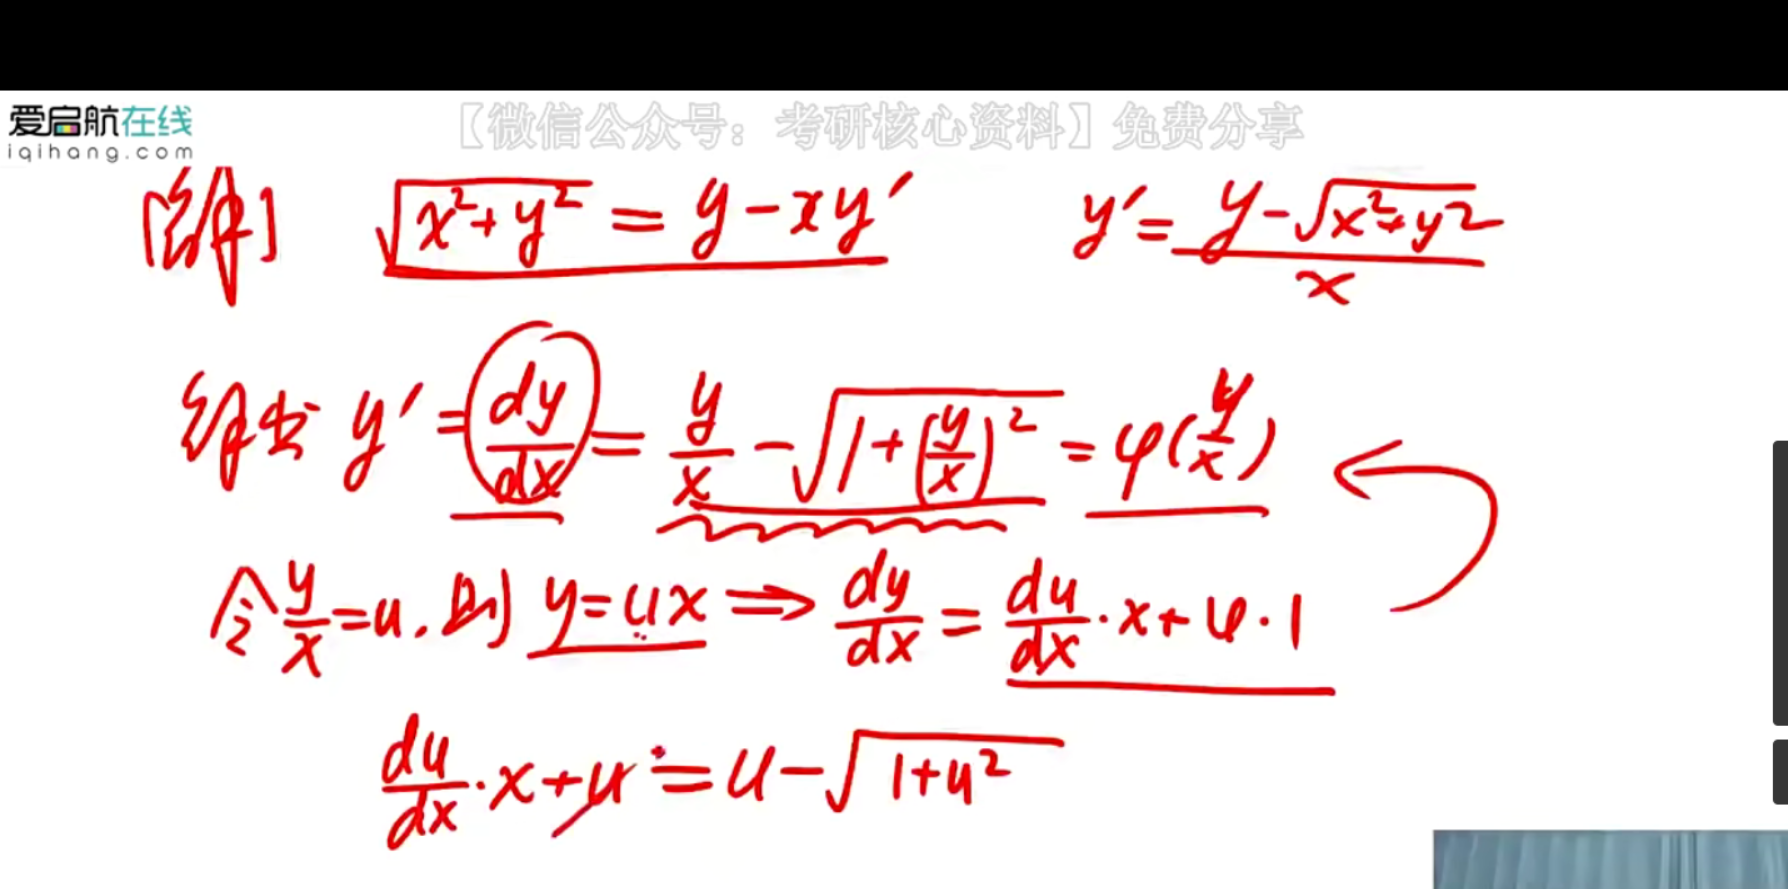 爱启航在线
iqihang.com
【微信公众号：考研核心资料】免费分享
[解] √(x²+y²) = y-xy′ y′= (y-√(x²+y²))/x
解出 y′ = dy/dx = y/x - √(1+(y/x)²) = φ(y/x)
令 y/x = u, 则 y=ux ⇒ dy/dx = du/dx·x+u·1
du/dx·x+u = u-√(1+u²)